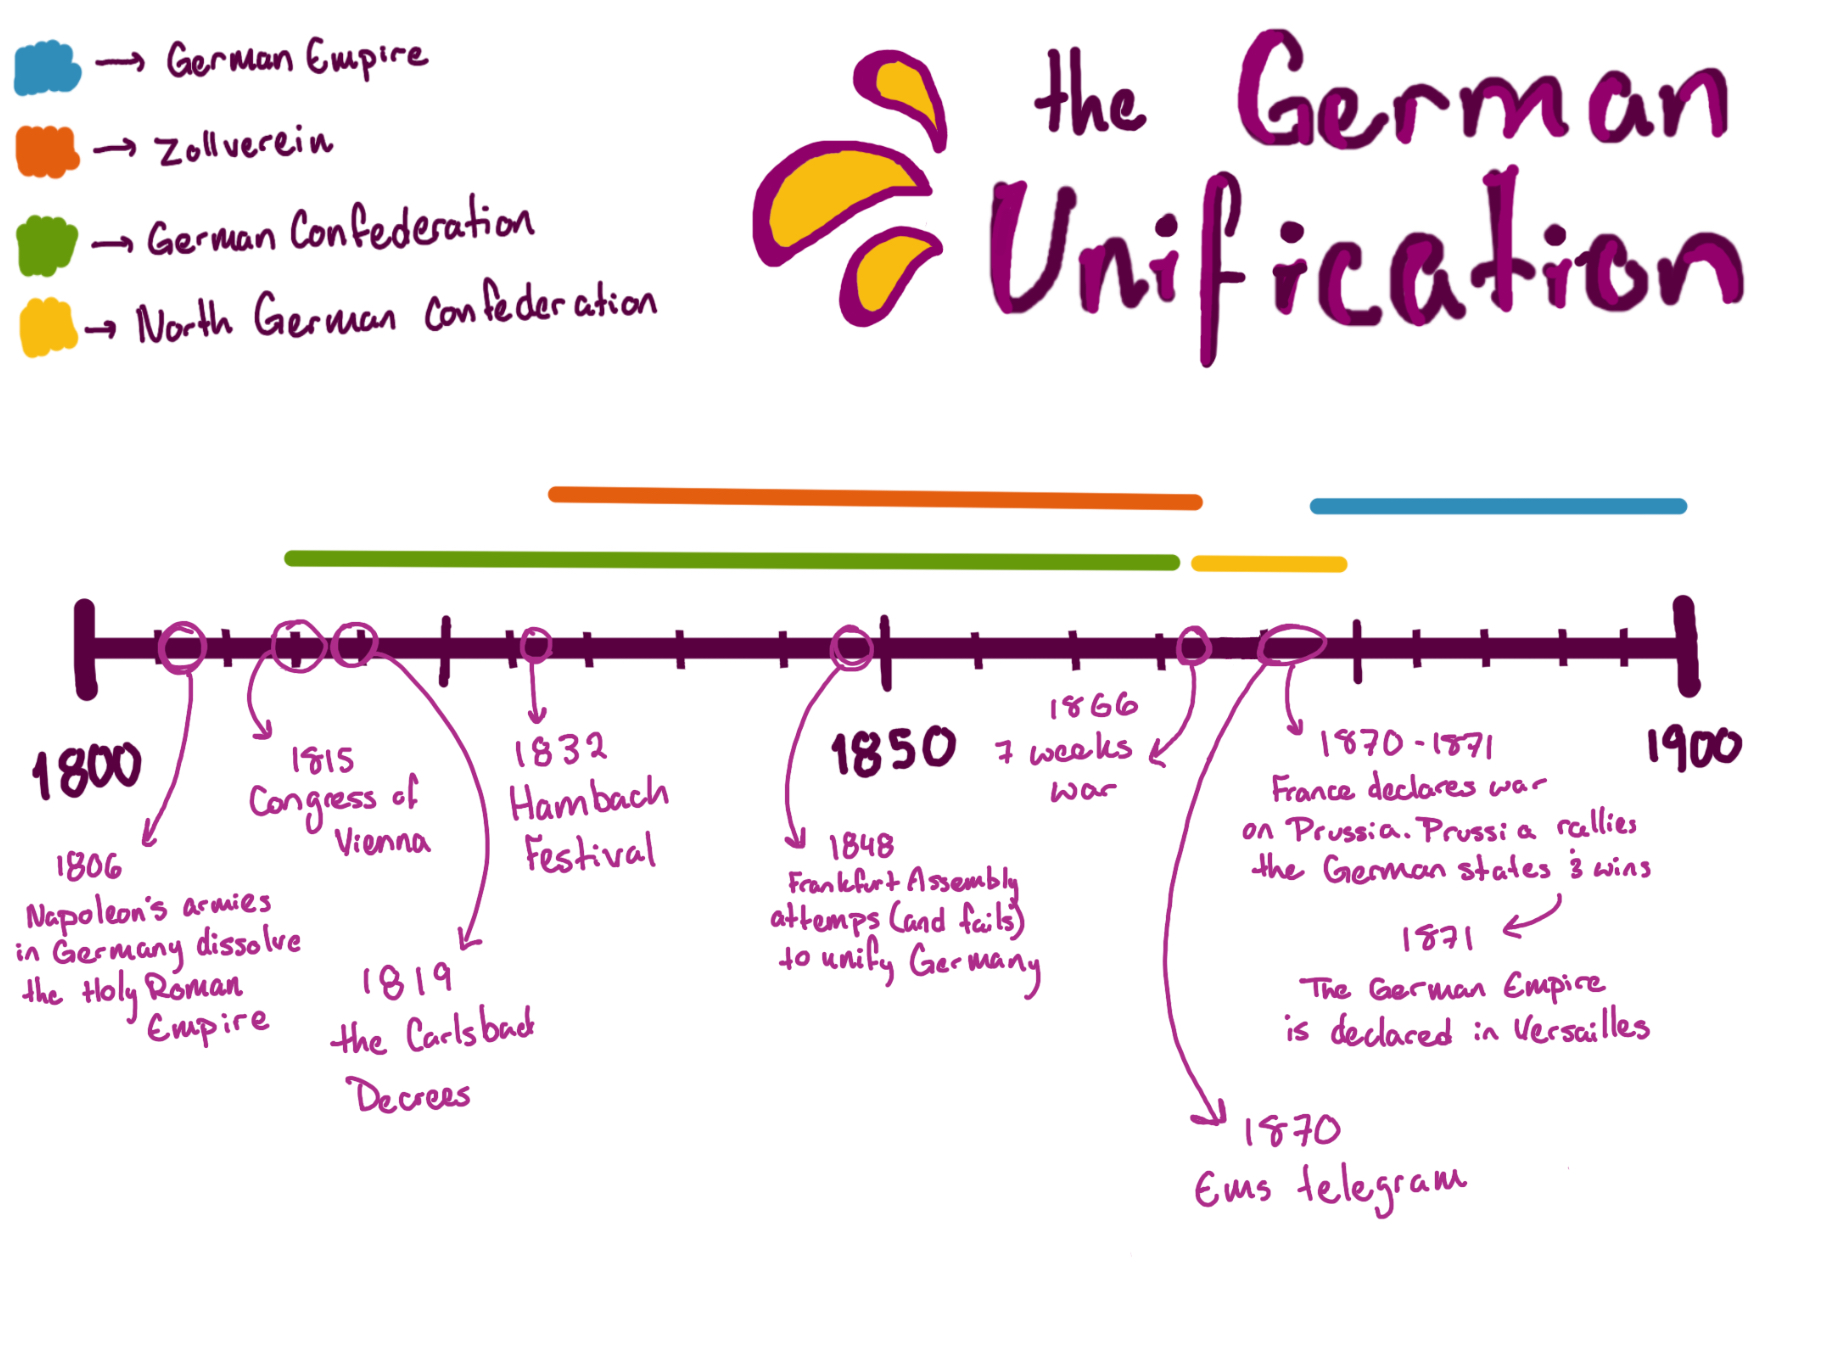 German Empire
Zollverein
German Confederation
North German Confederation
the German
Unification
1800
1850
1900
1806
Napoleon's armies
in Germany dissolve
the Holy Roman
Empire
1815
Congress of
Vienna
1819
the Carlsbad
Decrees
1832
Hambach
Festival
1848
Frankfurt Assembly
attemps (and fails)
to unify Germany
1866
7 weeks
war
1870-1871
France declares war
on Prussia. Prussia rallies
the German states & wins
1871
The German Empire
is declared in Versailles
1870
Ems telegram